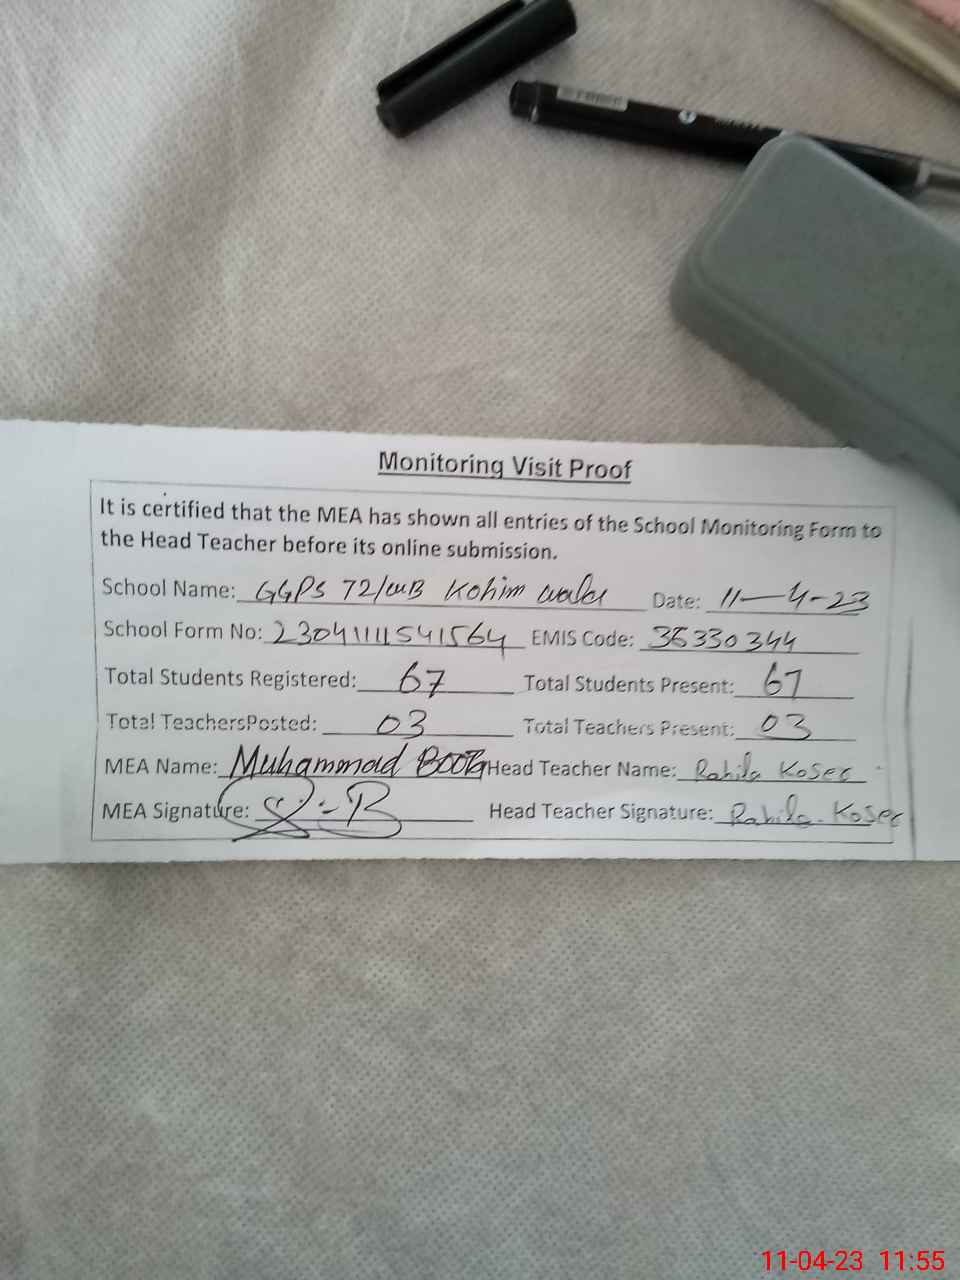 Monitoring Visit Proof
It is certified that the MEA has shown all entries of the School Monitoring Form to
the Head Teacher before its online submission.
School Name: GGPS 72/WB Kohim wala Date: 11-4-23
School Form No: 23041111541564 EMIS Code: 36330344
Total Students Registered: 67 Total Students Present: 67
Total TeachersPosted: 03 Total Teachers Present: 03
MEA Name: Muhammad BOOTA Head Teacher Name: Rahila Koser
MEA Signature: Head Teacher Signature: Rahila. Koser
11-04-23 11:55